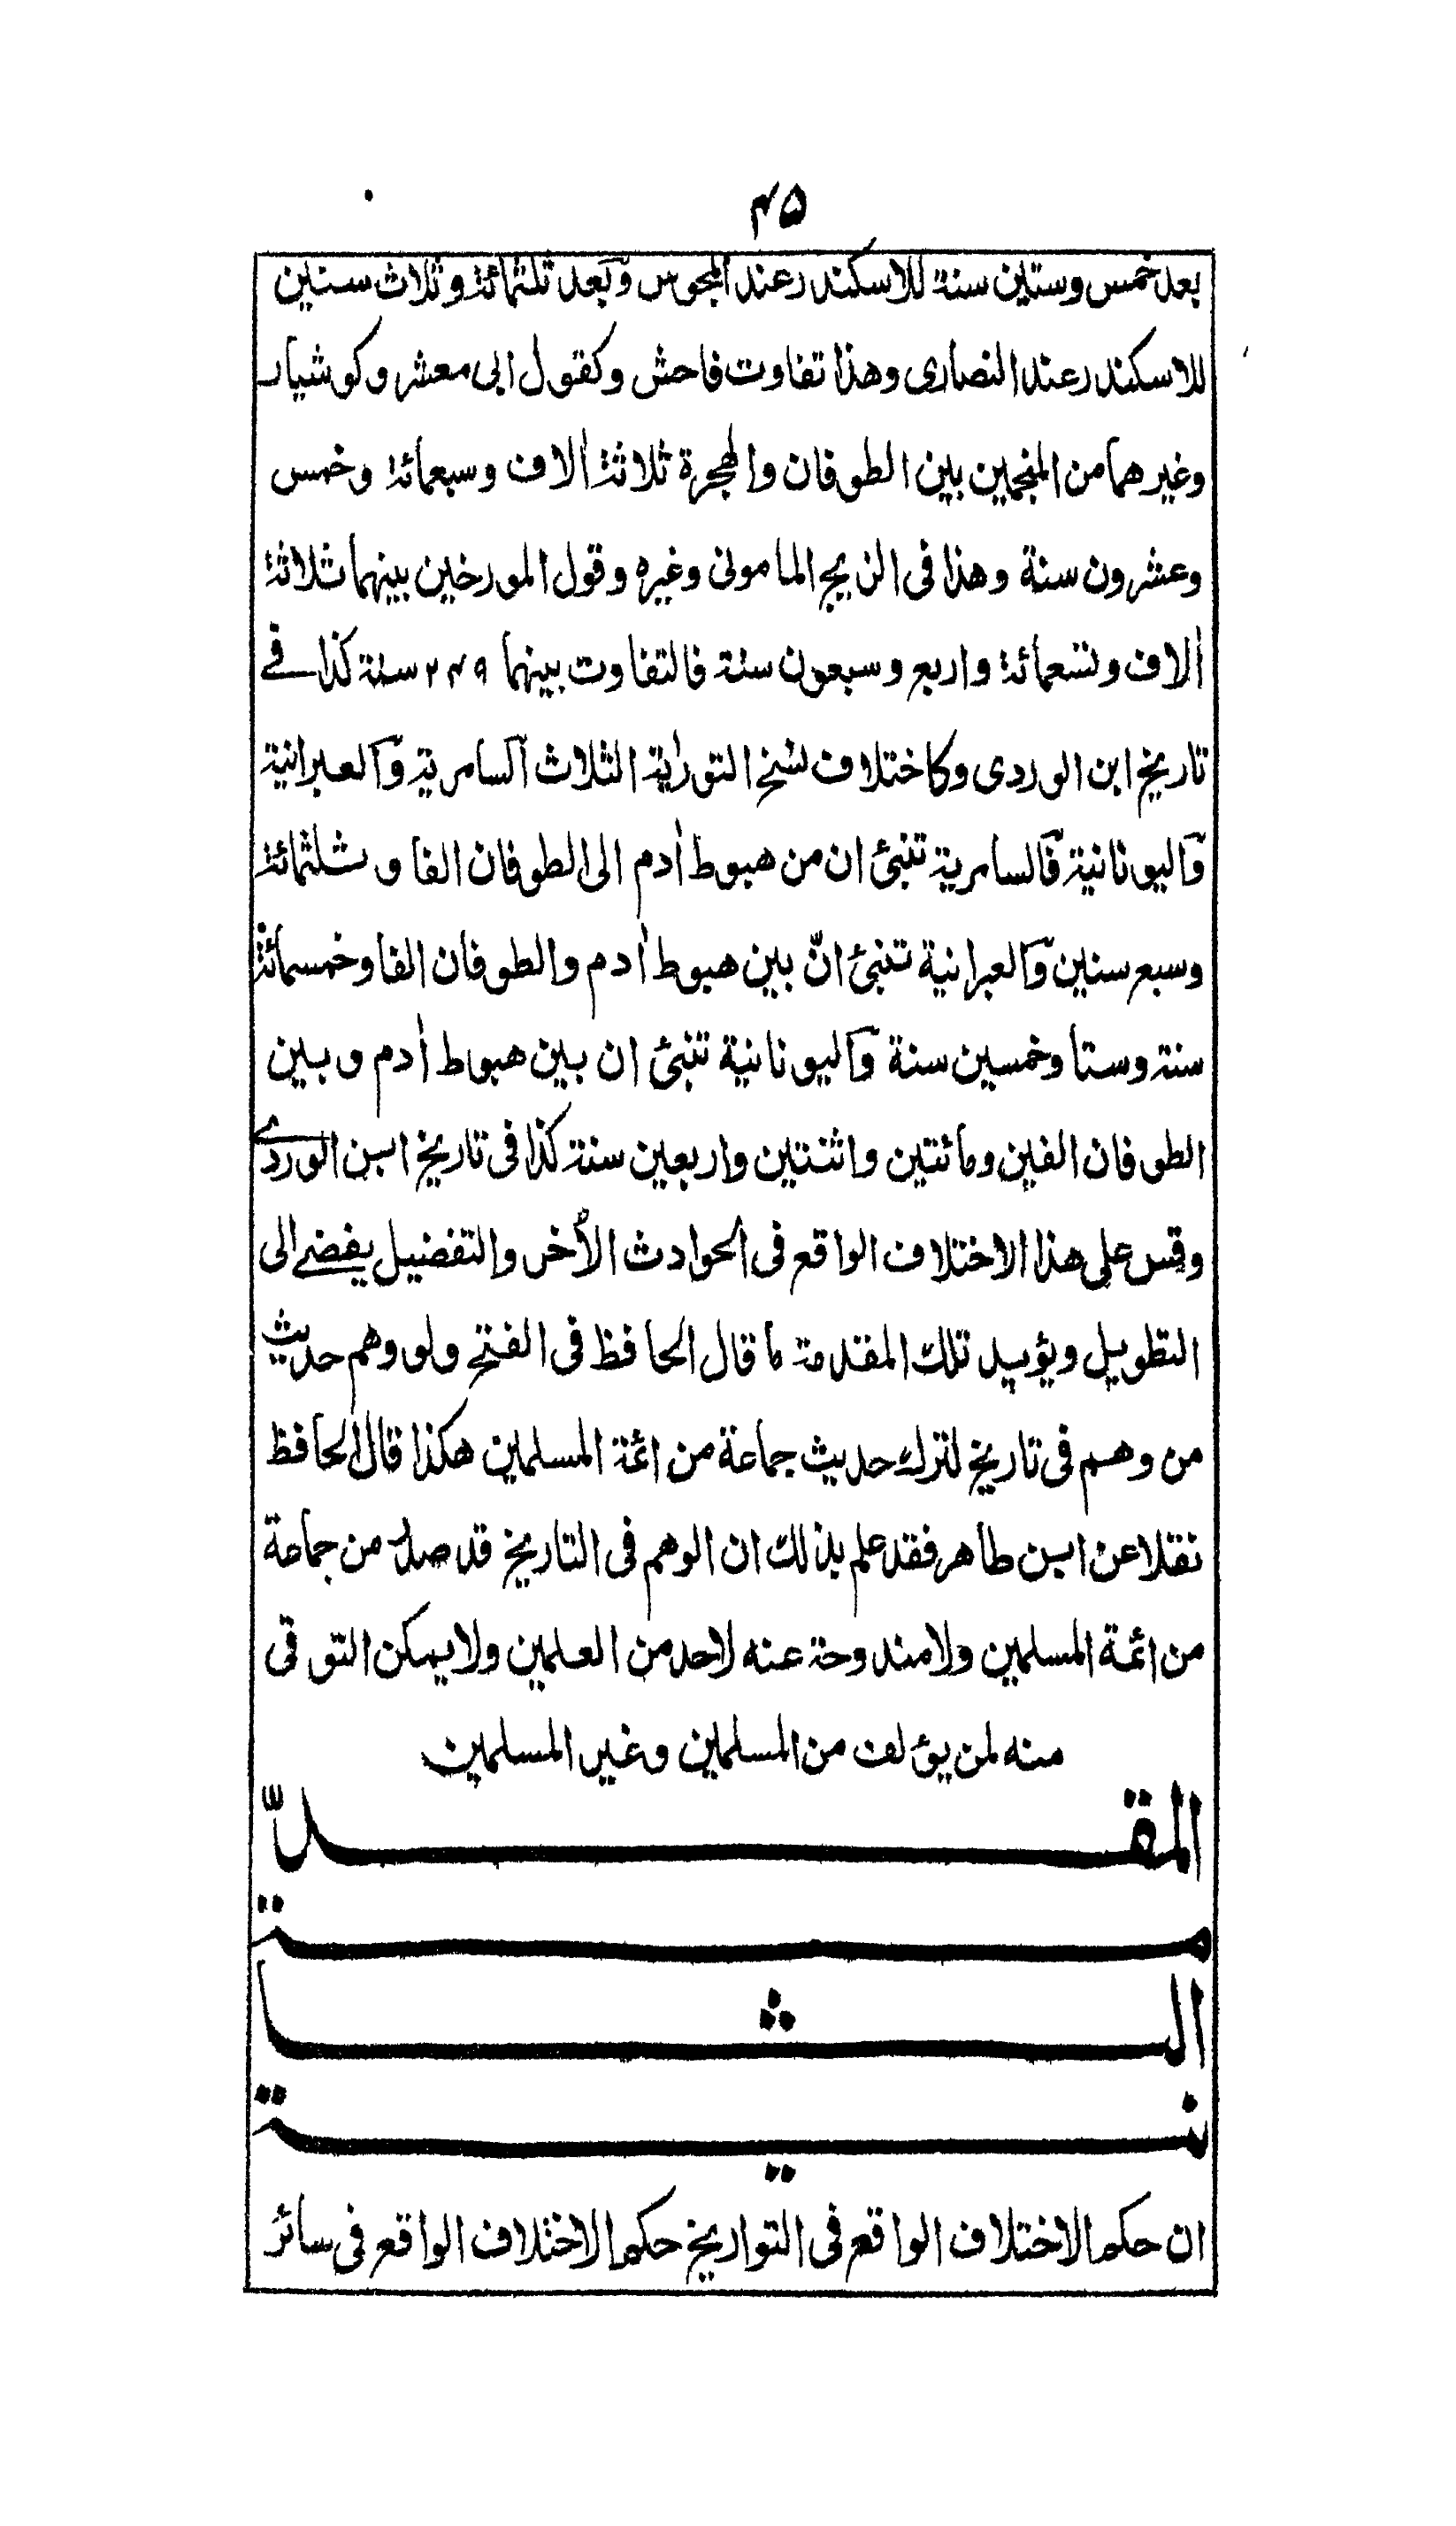 ۴۵
بعد خمس وستين سنة للاسكندر عند المجوس وبعد ثلثمائة وثلاث سنين
للاسكندر عند النصارى وهذا تفاوت فاحش وكقول ابى معشر وكوشيار
وغيرهما من المنجمين بين الطوفان والهجرة ثلاثة اٰلاف وسبعمائة وخمس
وعشرون سنة وهذا فى الزيج المامونى وغيره وقول المورخين بينهما ثلاثة
اٰلاف وتسعمائة واربع وسبعون سنة فالتفاوت بينهما ۲۴۹ سنة كذا فے
تاريخ ابن الوردى وكاختلاف نسخ التورٰية الثلاث السامرية والعبرانية
واليونانية فالسامرية تنبئ ان من هبوط اٰدم الى الطوفان الفا وثلثمائة
وسبع سنين والعبرانية تنبئ انّ بين هبوط اٰدم والطوفان الفا وخمسمائة
سنة وستا وخمسين سنة واليونانية تنبئ ان بين هبوط اٰدم وبين
الطوفان الفين ومائتين واثنتين واربعين سنة كذا فى تاريخ ابن الوردے
وقس على هذا الاختلاف الواقع فى الحوادث الاُخر والتفضيل يفضے الى
التطويل ويؤيد تلك المقدمة ما قال الحافظ فى الفتح ولو وهم حديث
من وهم فى تاريخ لترك حديث جماعة من ائمة المسلمين هكذا قال الحافظ
نقلا عن ابن طاهر فقد علم بذلك ان الوهم فى التاريخ قد صدر من جماعة
من ائمة المسلمين ولا مندوحة عنه لاحد من العلمين ولا يمكن التوقى
منه لمن يؤلف من المسلمين وغير المسلمين
المقدّ
مة
الثا
نية
ان حكم الاختلاف الواقع فى التواريخ حكم الاختلاف الواقع فى سائر